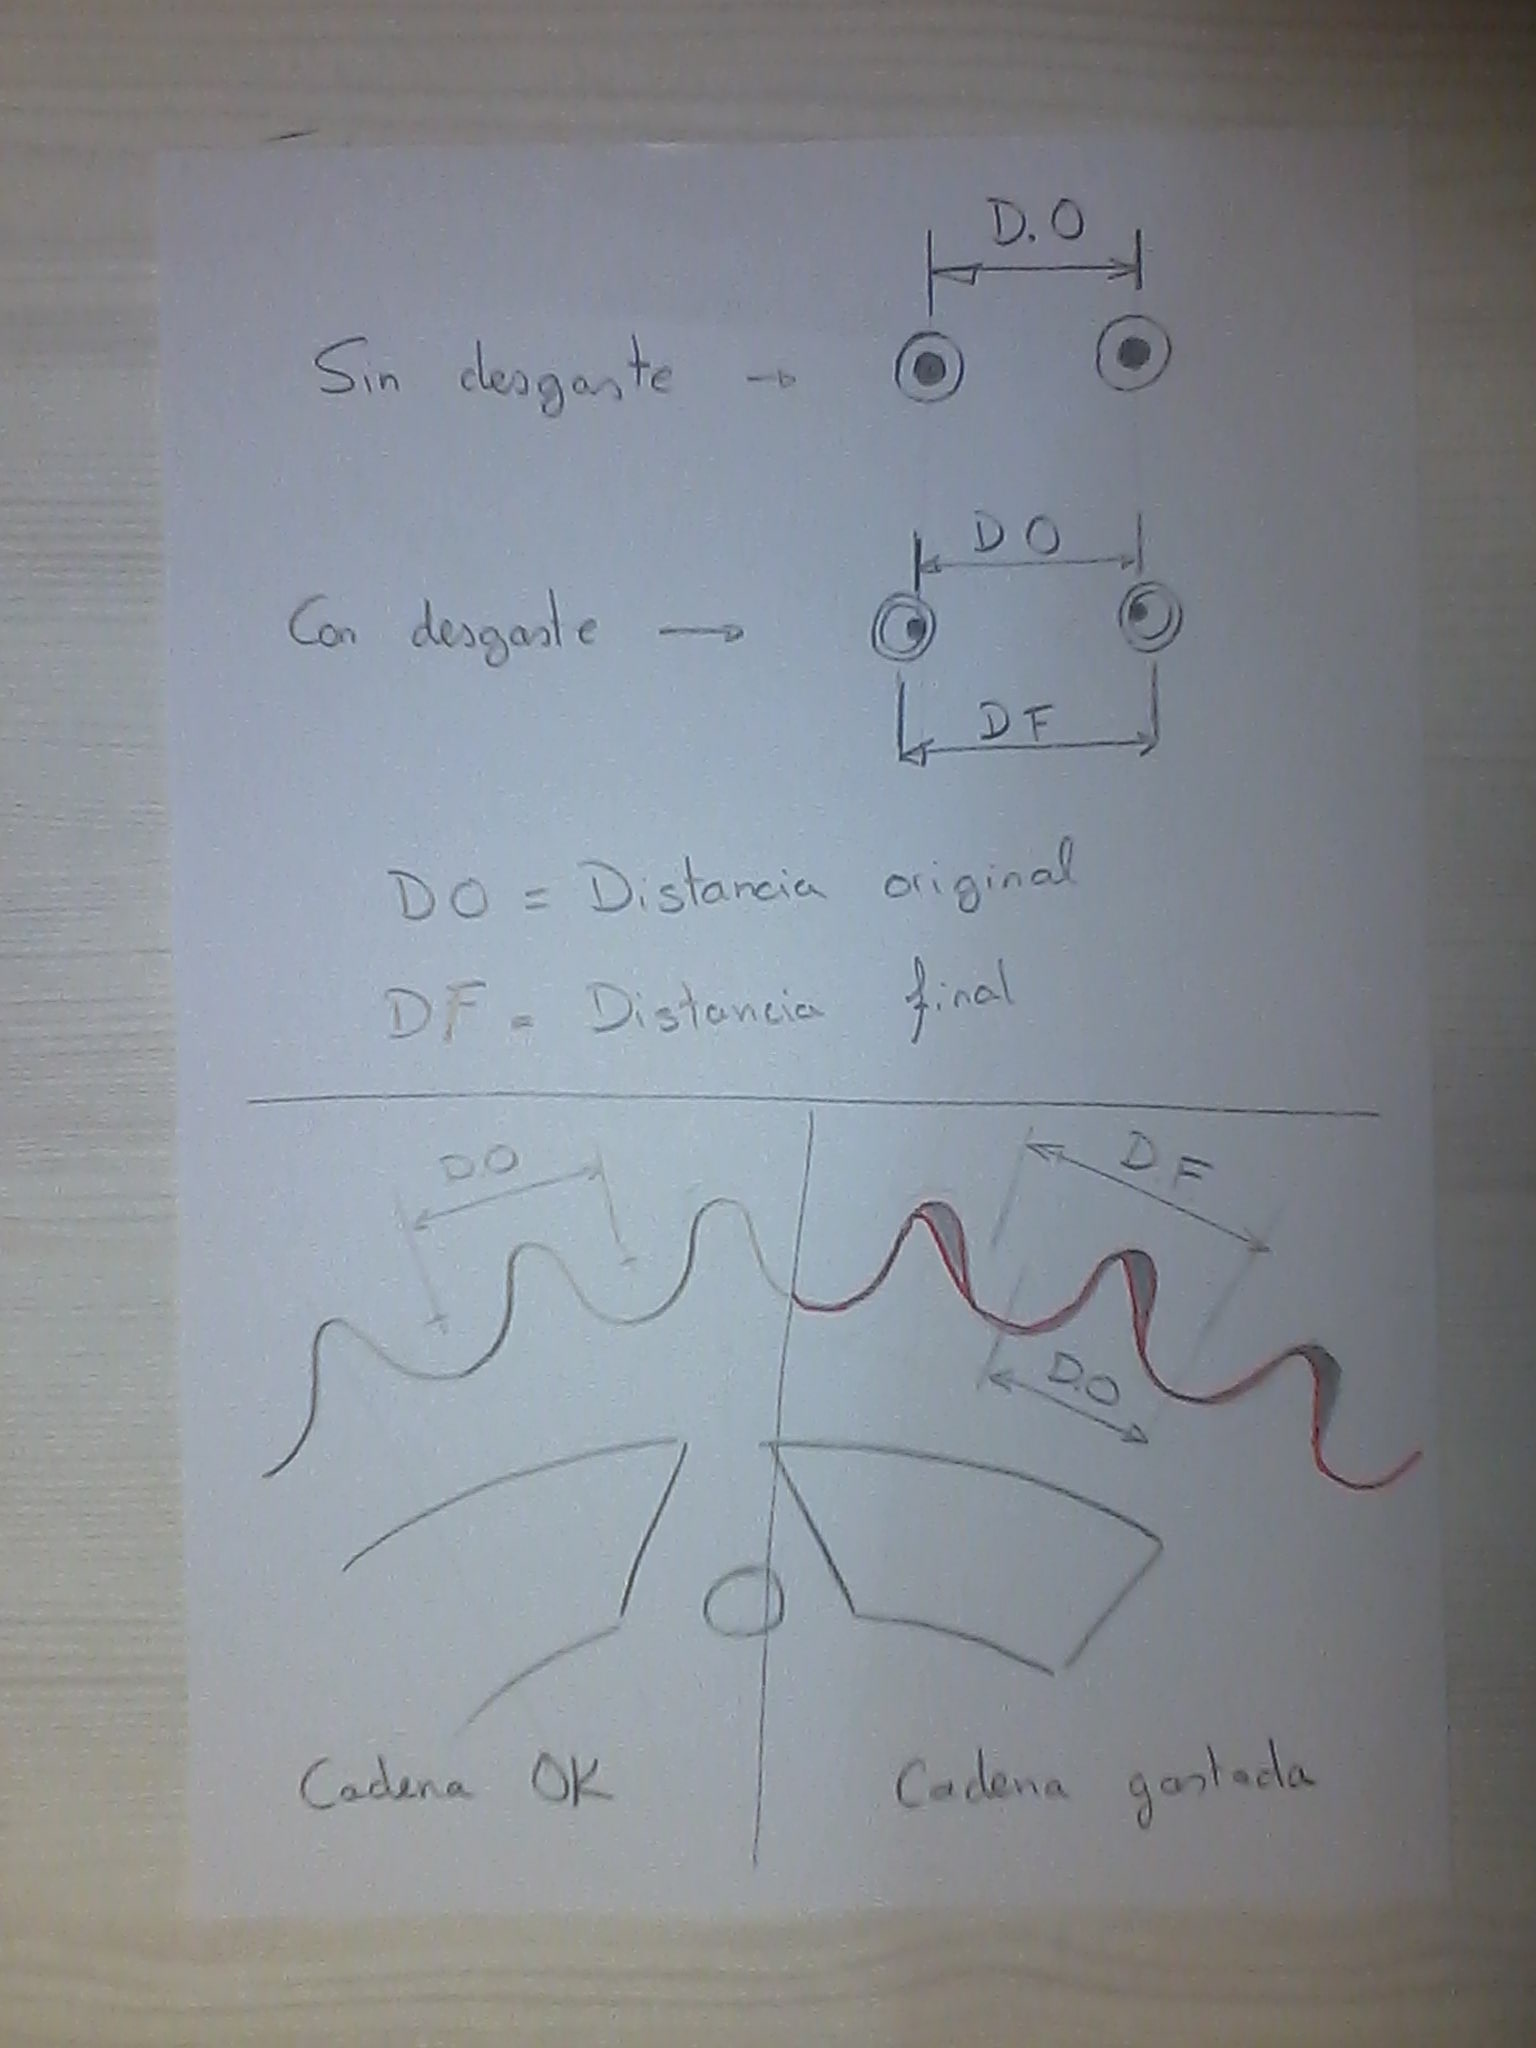 D.O
Sin desgaste →
D O
Con desgaste →
D F
DO = Distancia original
DF = Distancia final
D.O
D.F
D.O
Cadena OK
Cadena gastada